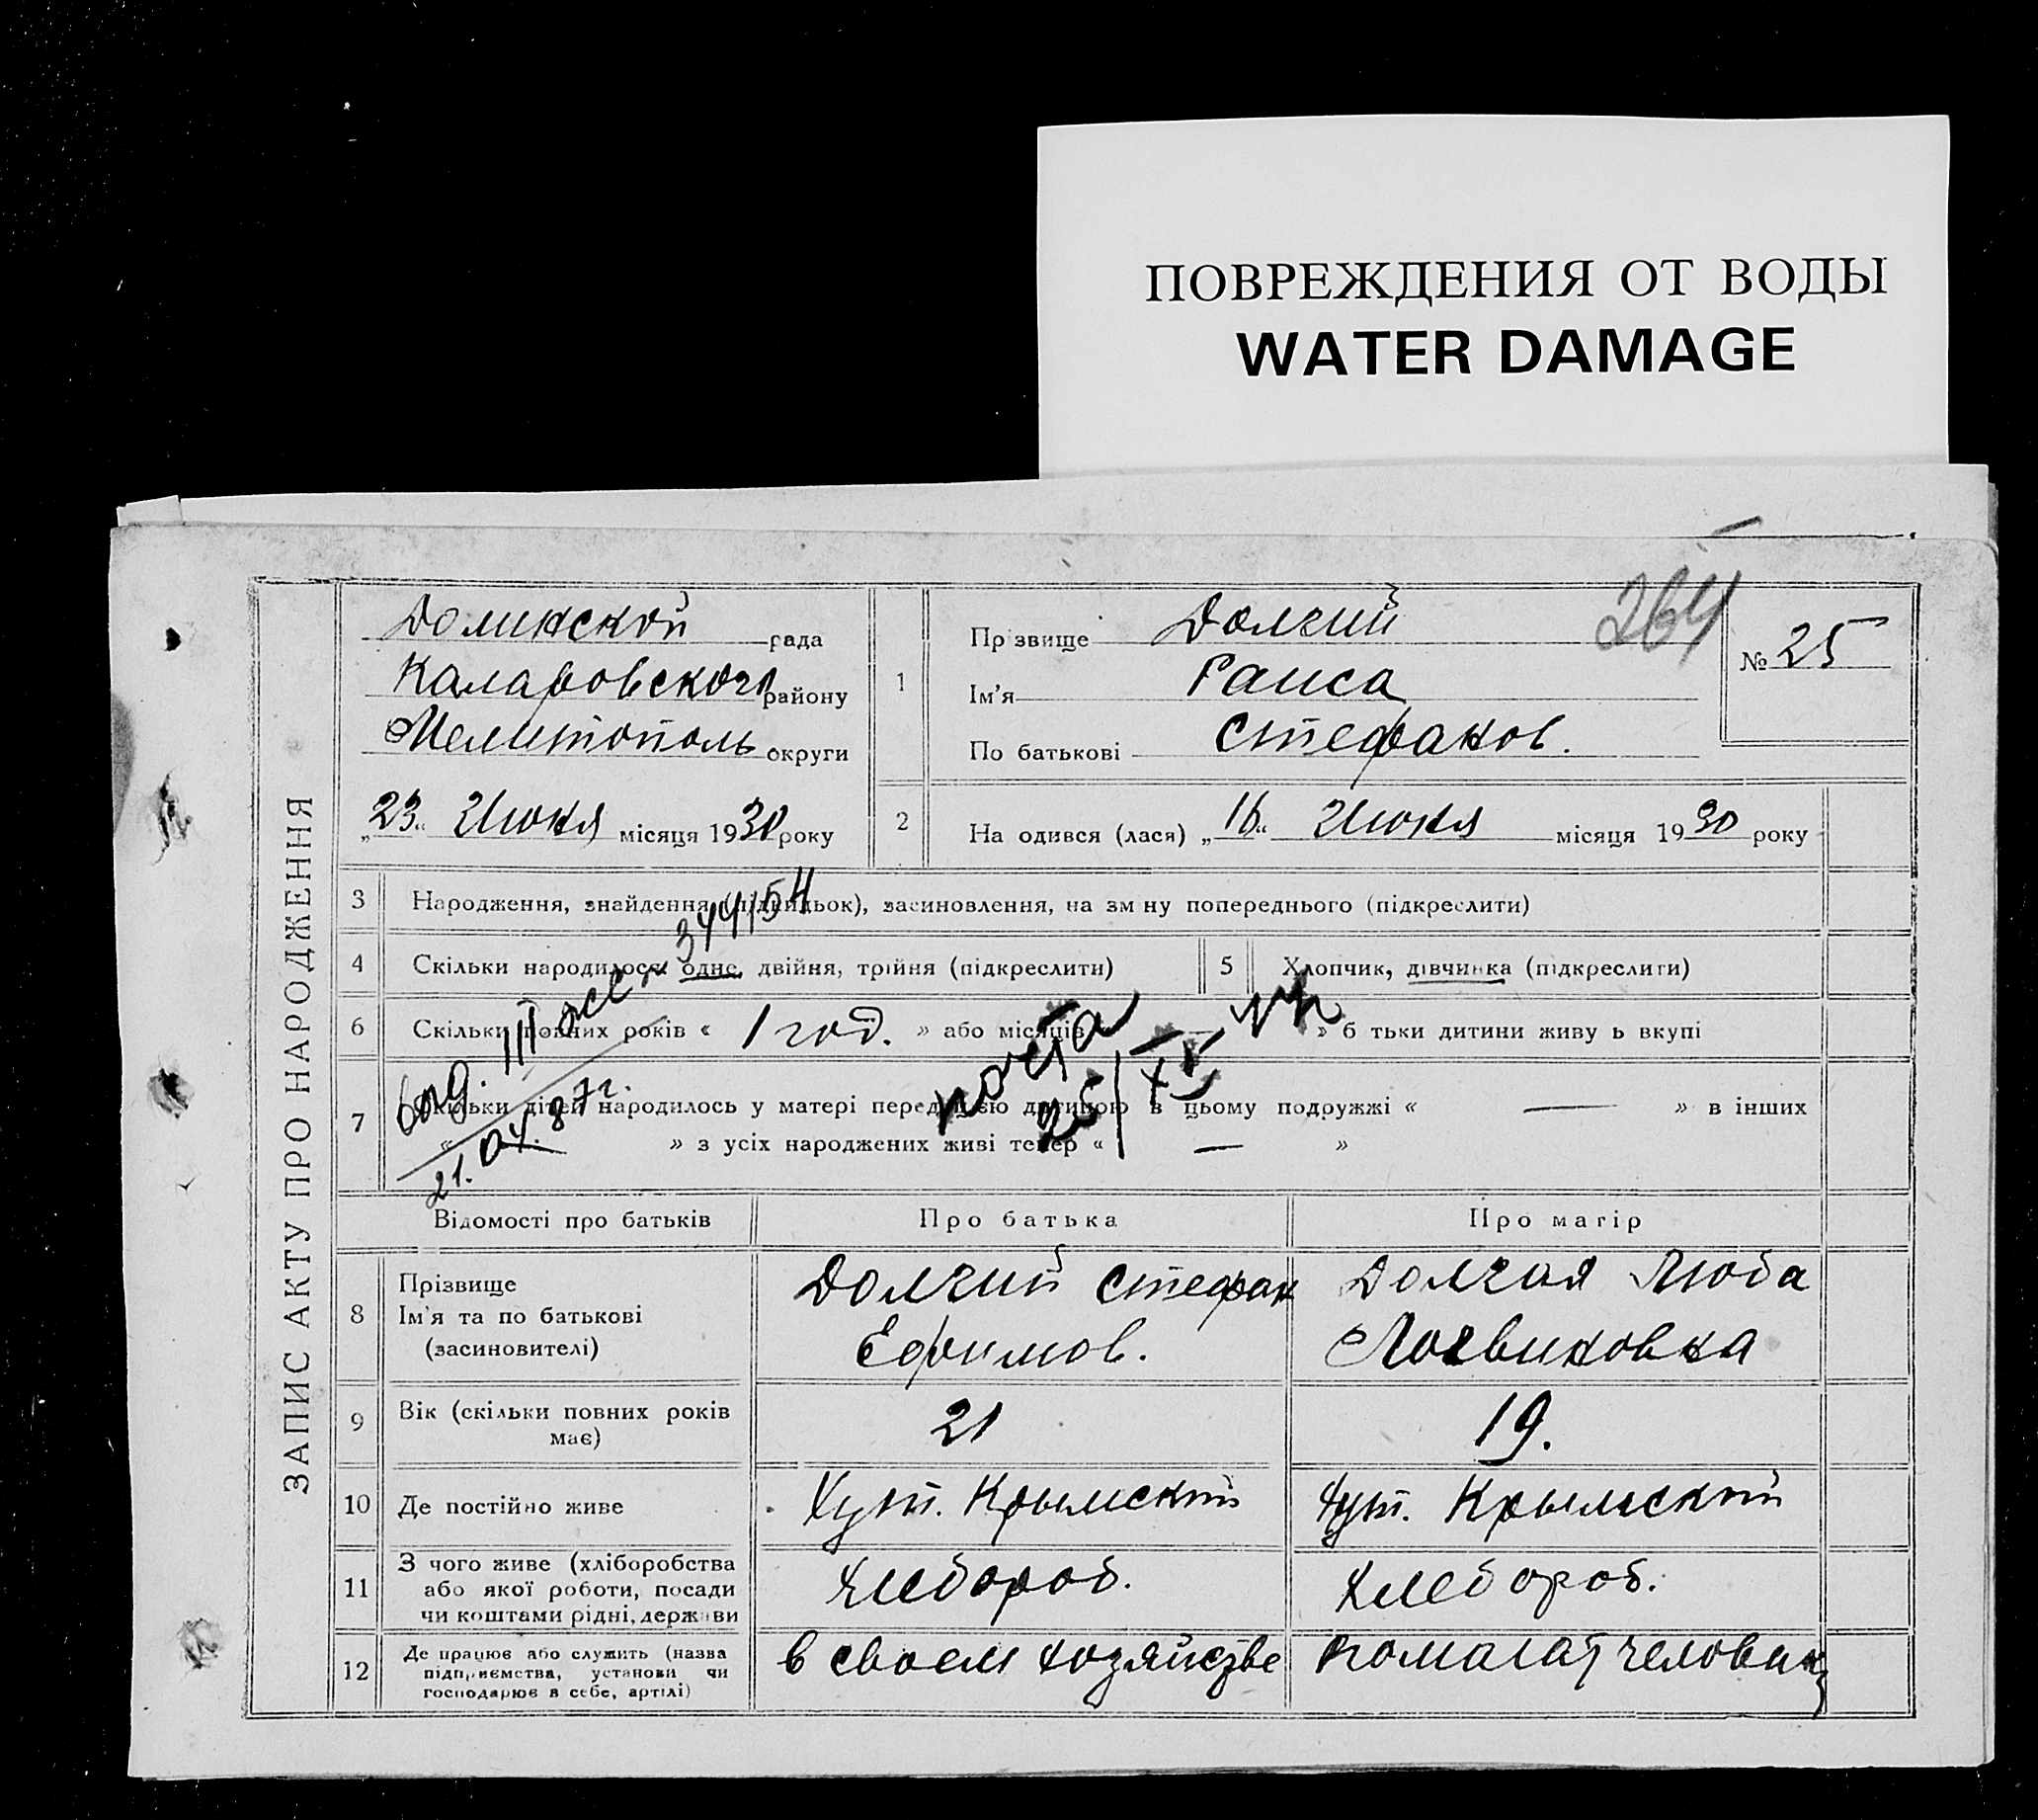 ПОВРЕЖДЕНИЯ ОТ ВОДЫ
WATER DAMAGE
264
ЗАПИС АКТУ ПРО НАРОДЖЕННЯ
Долинской рада
Каларовского району
Мелитополь округи
„23“ Июня місяця 1930 року
1
Пр звище Долгий
Ім'я Раиса
По батькові Стефанов.
№ 25
2
На одився (лася) „16“ Июня місяця 1930 року
3 Народження, знайдення (підкидьок), засиновлення, на зм ну попереднього (підкреслити)
344154
4 Скільки народилося: одне, двійня, трійня (підкреслити)
5 Хлопчик, дівчинка (підкреслити)
6 Скільки повних років « 1 год. » або місяців » б тьки дитини живу ь вкупі
7 Скільки дітей народилось у матері перед цією дитиною в цьому подружжі « — » в інших
« » з усіх народжених живі тепер « — »
21.04.87г.
Відомості про батьків Про батька Про матір
8
Прізвище
Ім'я та по батькові
(засиновителі)
Долгий Стефан
Ефимов.
Долгая Люба
Логвиновна
9
Вік (скільки повних років
має)
21
19.
10 Де постійно живе
Хут. Крымский
Хут. Крымский
11
З чого живе (хліборобства
або якої роботи, посади
чи коштами рідні, держави
Хлебороб.
Хлебороб.
12
Де працює або служить (назва
підприємства, установи чи
господарює в себе, артілі)
в своем хозяйстве